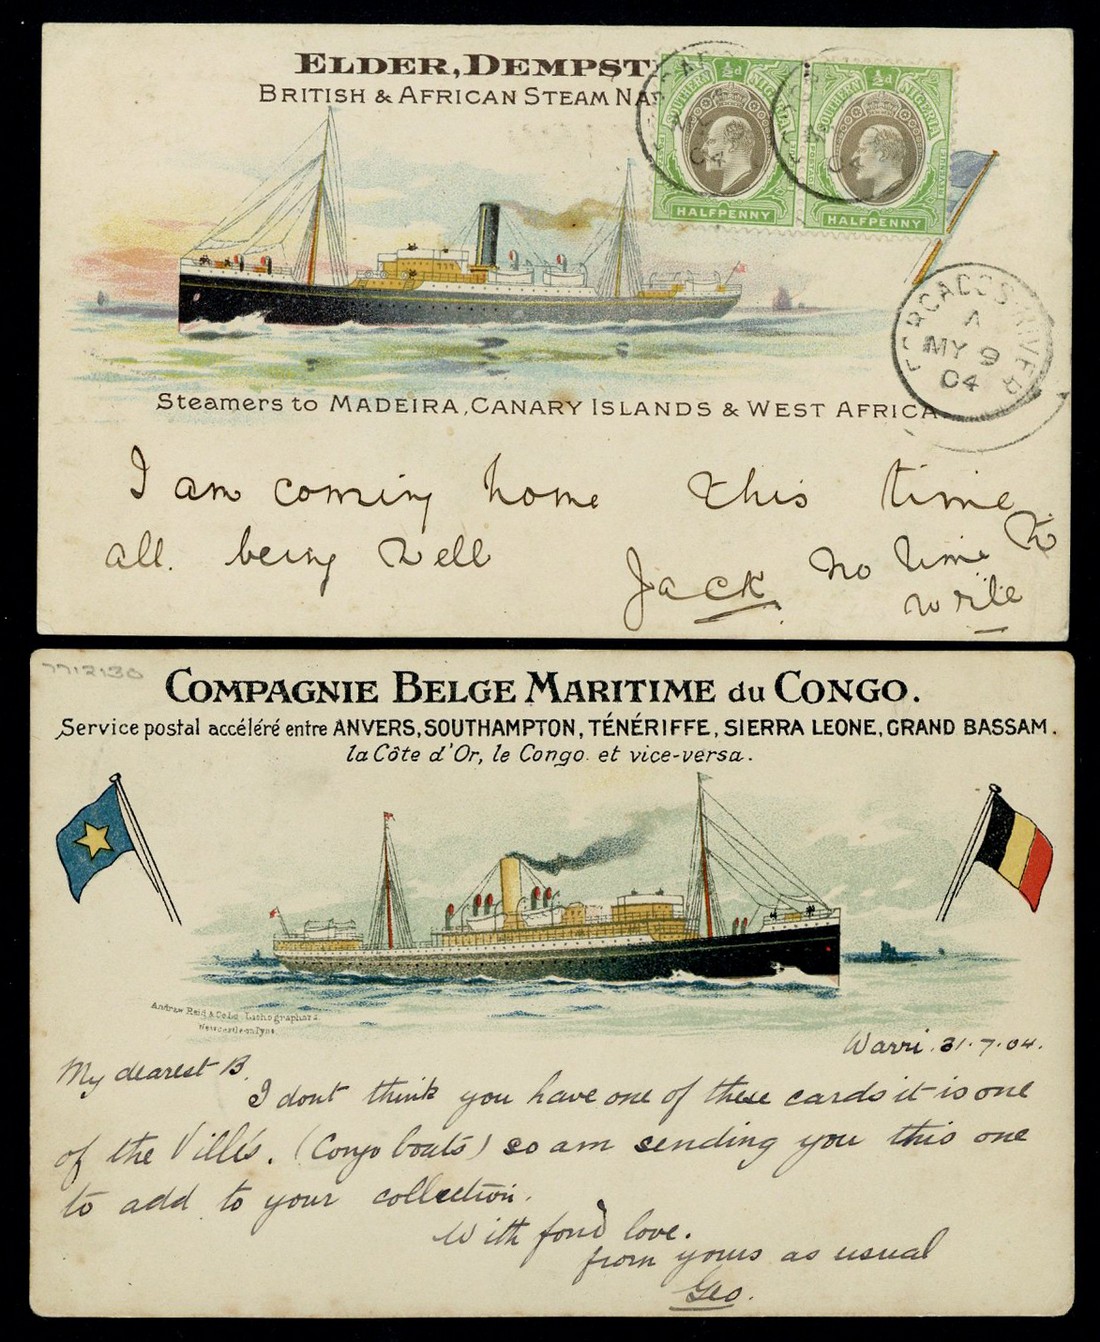 ELDER, DEMPST
BRITISH & AFRICAN STEAM NA
SOUTHERN ½d NIGERIA
HALFPENNY
SOUTHERN ½d NIGERIA
POSTAGE & REVENUE
HALFPENNY
04
04
FORCADOS RIVER
A
MY 9
04
Steamers to MADEIRA, CANARY ISLANDS & WEST AFRICA
I am coming home this time
all. being well
Jack
No time to
write
7712130
COMPAGNIE BELGE MARITIME du CONGO.
Service postal accéléré entre ANVERS, SOUTHAMPTON, TÉNÉRIFFE, SIERRA LEONE, GRAND BASSAM.
la Côte d'Or, le Congo. et vice-versa.
Andrew Reid & Co Ld Lithographers.
Newcastle on Tyne.
Warri. 31.7.04.
My dearest B.
I dont think you have one of these cards it is one
of the Ville's. (Congo boats) so am sending you this one
to add to your collection.
With fond love.
from yours as usual
Geo.